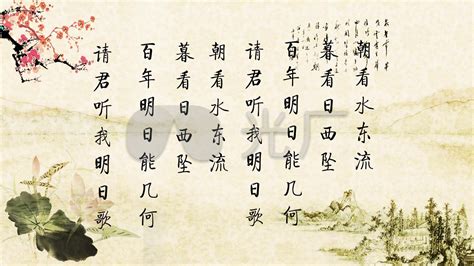 朝看水东流
暮看日西坠
百年明日能几何
请君听我明日歌
朝看水东流
暮看日西坠
百年明日能几何
请君听我明日歌
光厂